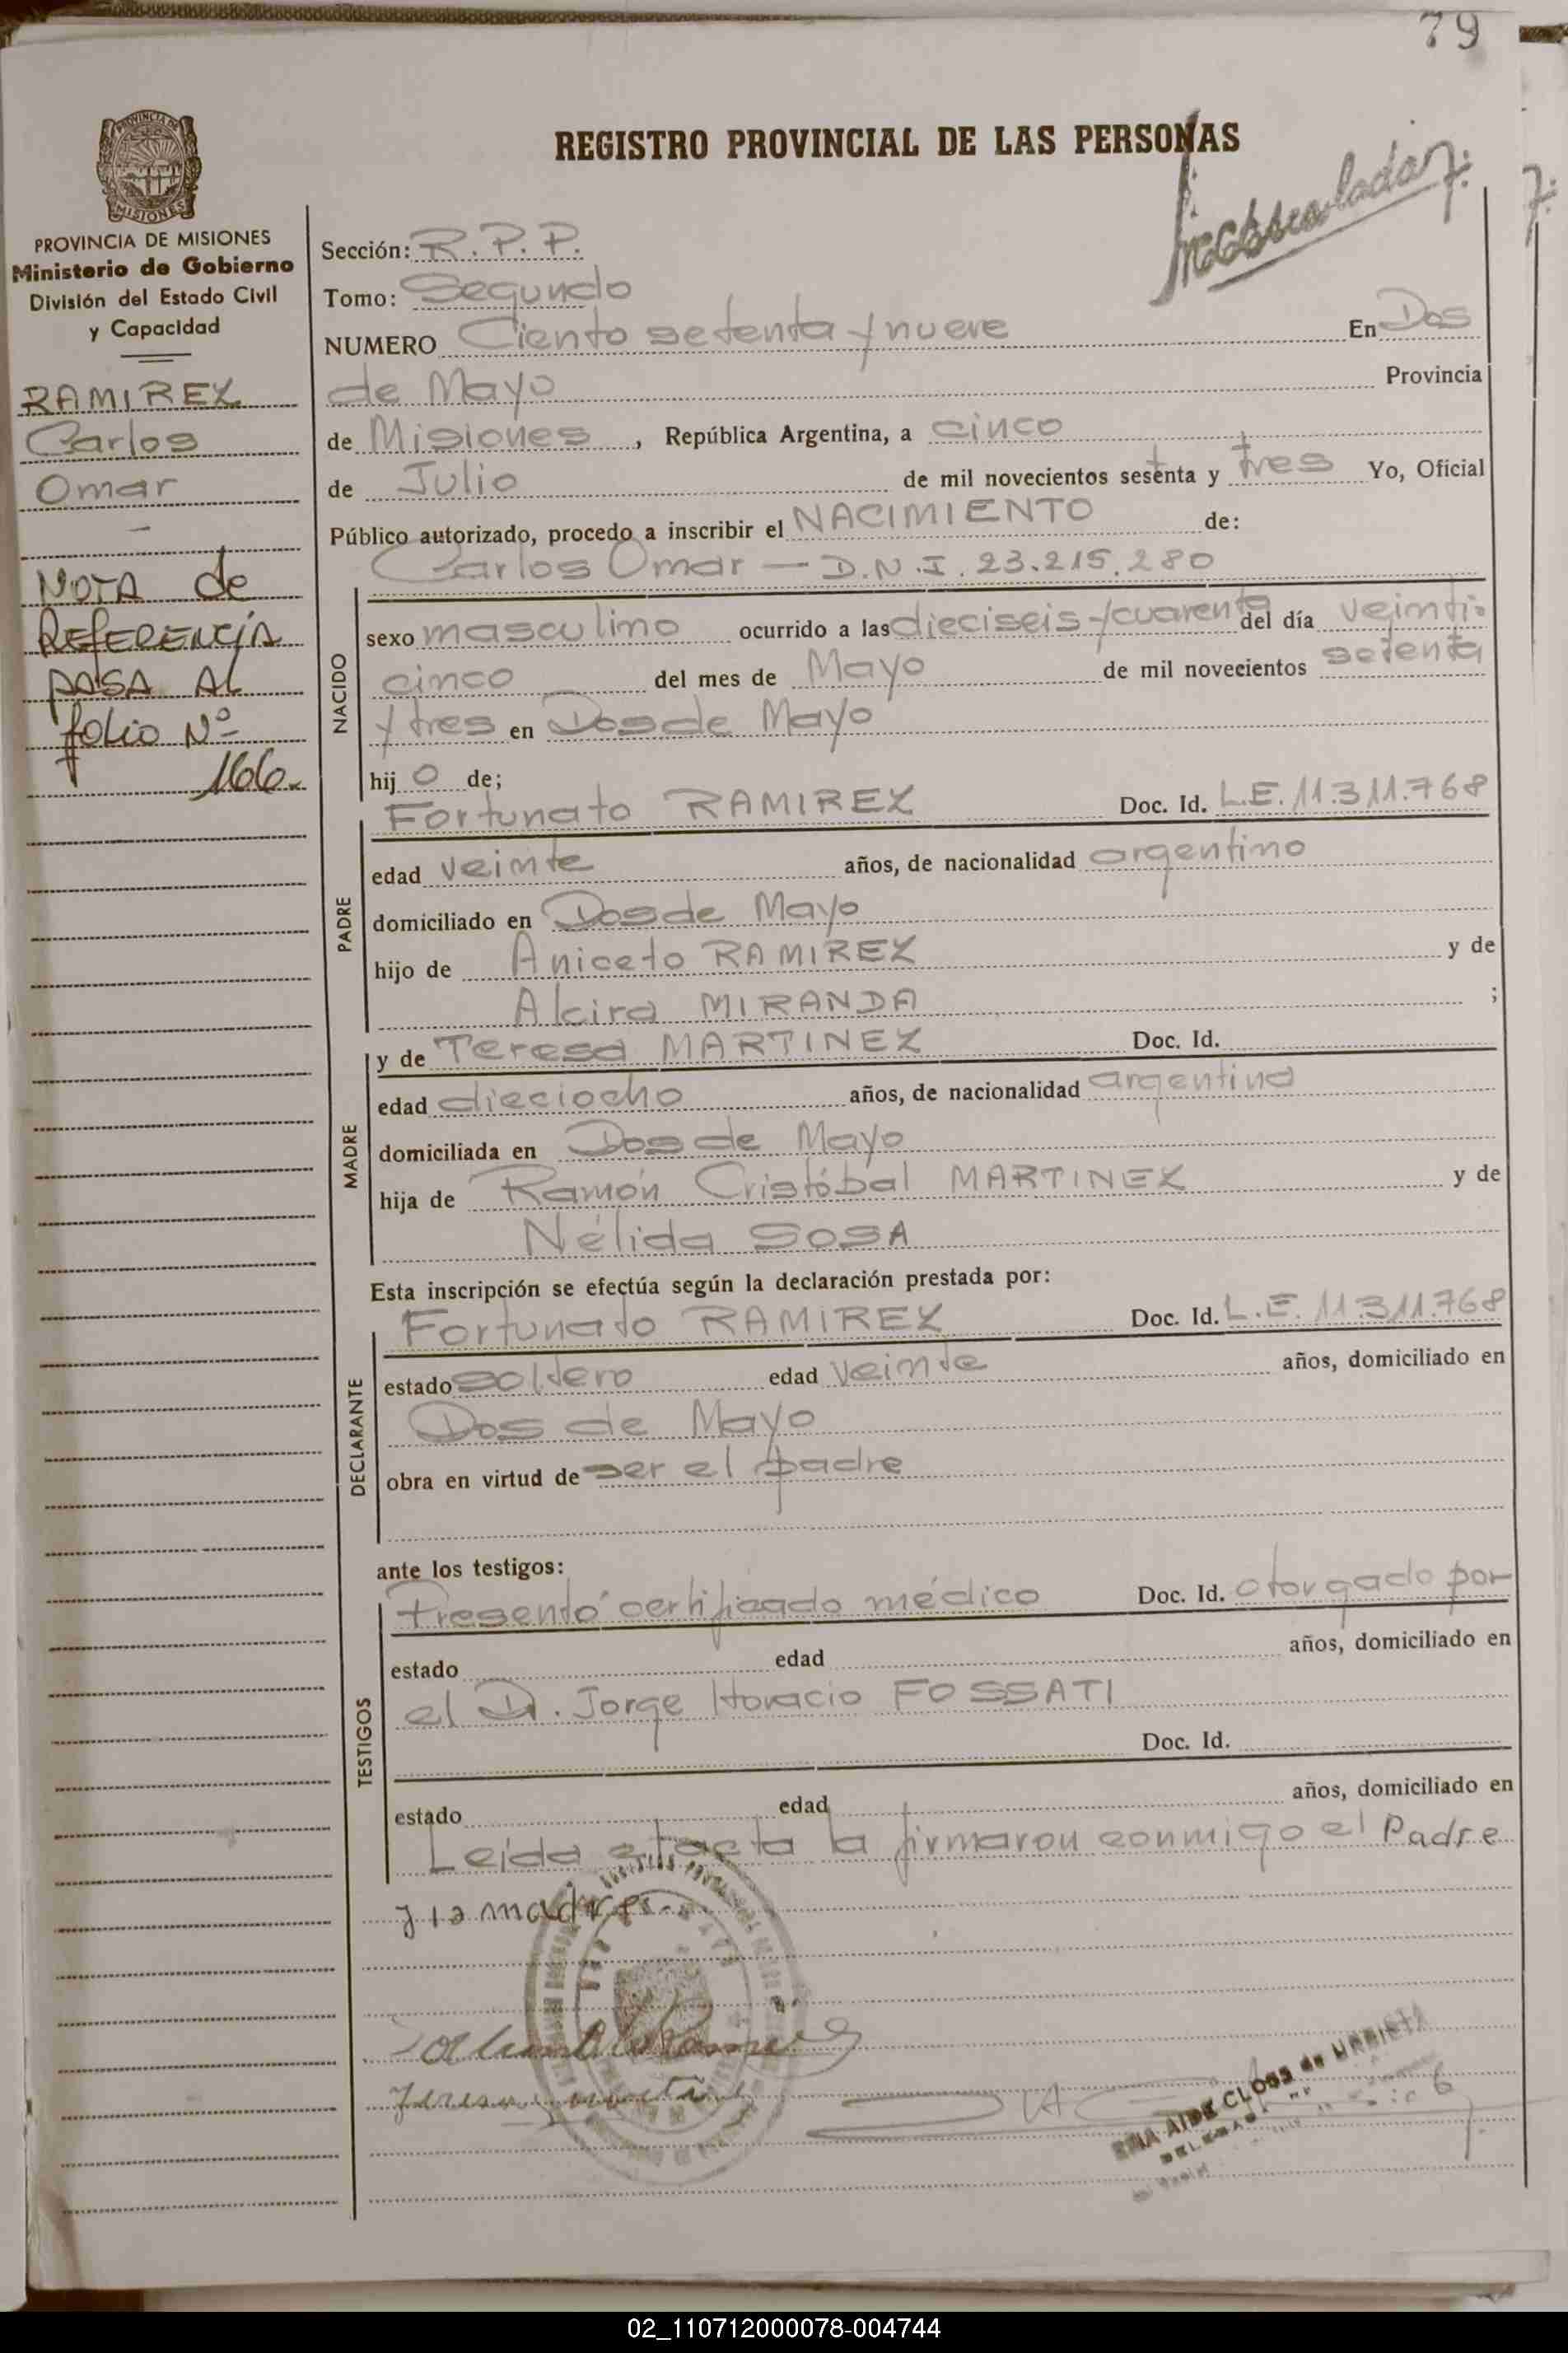 79
PROVINCIA DE MISIONES
Ministerio de Gobierno
División del Estado Civil
y Capacidad
RAMIREZ
Carlos
Omar
NOTA de
REFERENCIA
PASA AL
folio Nº
166.-
REGISTRO PROVINCIAL DE LAS PERSONAS
Sección: R.P.P.
Tomo: Segundo
NUMERO Ciento setenta y nueve En Dos
de Mayo Provincia
de Misiones, República Argentina, a cinco
de Julio de mil novecientos sesenta y tres Yo, Oficial
Público autorizado, procedo a inscribir el NACIMIENTO de:
Carlos Omar — D.N.I. 23.215.280
NACIDO
sexo masculino ocurrido a las dieciseis y cuarenta del día veinti-
cinco del mes de Mayo de mil novecientos setenta
y tres en Dos de Mayo
hijo de;
Fortunato RAMIREZ Doc. Id. L.E. 11.311.768
PADRE
edad veinte años, de nacionalidad argentino
domiciliado en Dos de Mayo
hijo de Aniceto RAMIREZ y de
Alcira MIRANDA ;
y de Teresa MARTINEZ Doc. Id.
MADRE
edad dieciocho años, de nacionalidad argentina
domiciliada en Dos de Mayo
hija de Ramón Cristóbal MARTINEZ y de
Nélida SOSA
Esta inscripción se efectúa según la declaración prestada por:
Fortunato RAMIREZ Doc. Id. L.E. 11.311.768
DECLARANTE
estado soltero edad veinte años, domiciliado en
Dos de Mayo
obra en virtud de ser el padre
ante los testigos:
Presentó certificado médico Doc. Id. otorgado por
TESTIGOS
estado edad años, domiciliado en
el Dr. Jorge Horacio FOSSATI
Doc. Id.
estado edad años, domiciliado en
Leída el acta la firmaron conmigo el Padre
y la madre.-
AIDE CLOSS de URRIETA
02_110712000078-004744